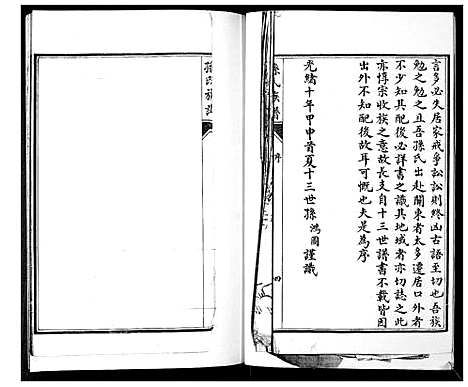 言多必失居家戒爭訟訟則終凶古語至切也吾族
勉之勉之且吾孫氏出赴關東者太多遷居口外者
不少知其配後必詳書之識其地域者亦切誌之此
亦惇宗收族之意故長支自十三世譜書不載皆因
出外不知配後故耳可慨也夫是為序
光緒十年甲申首夏十三世孫鴻圖謹識
孫氏族譜
序
四
孫氏族譜